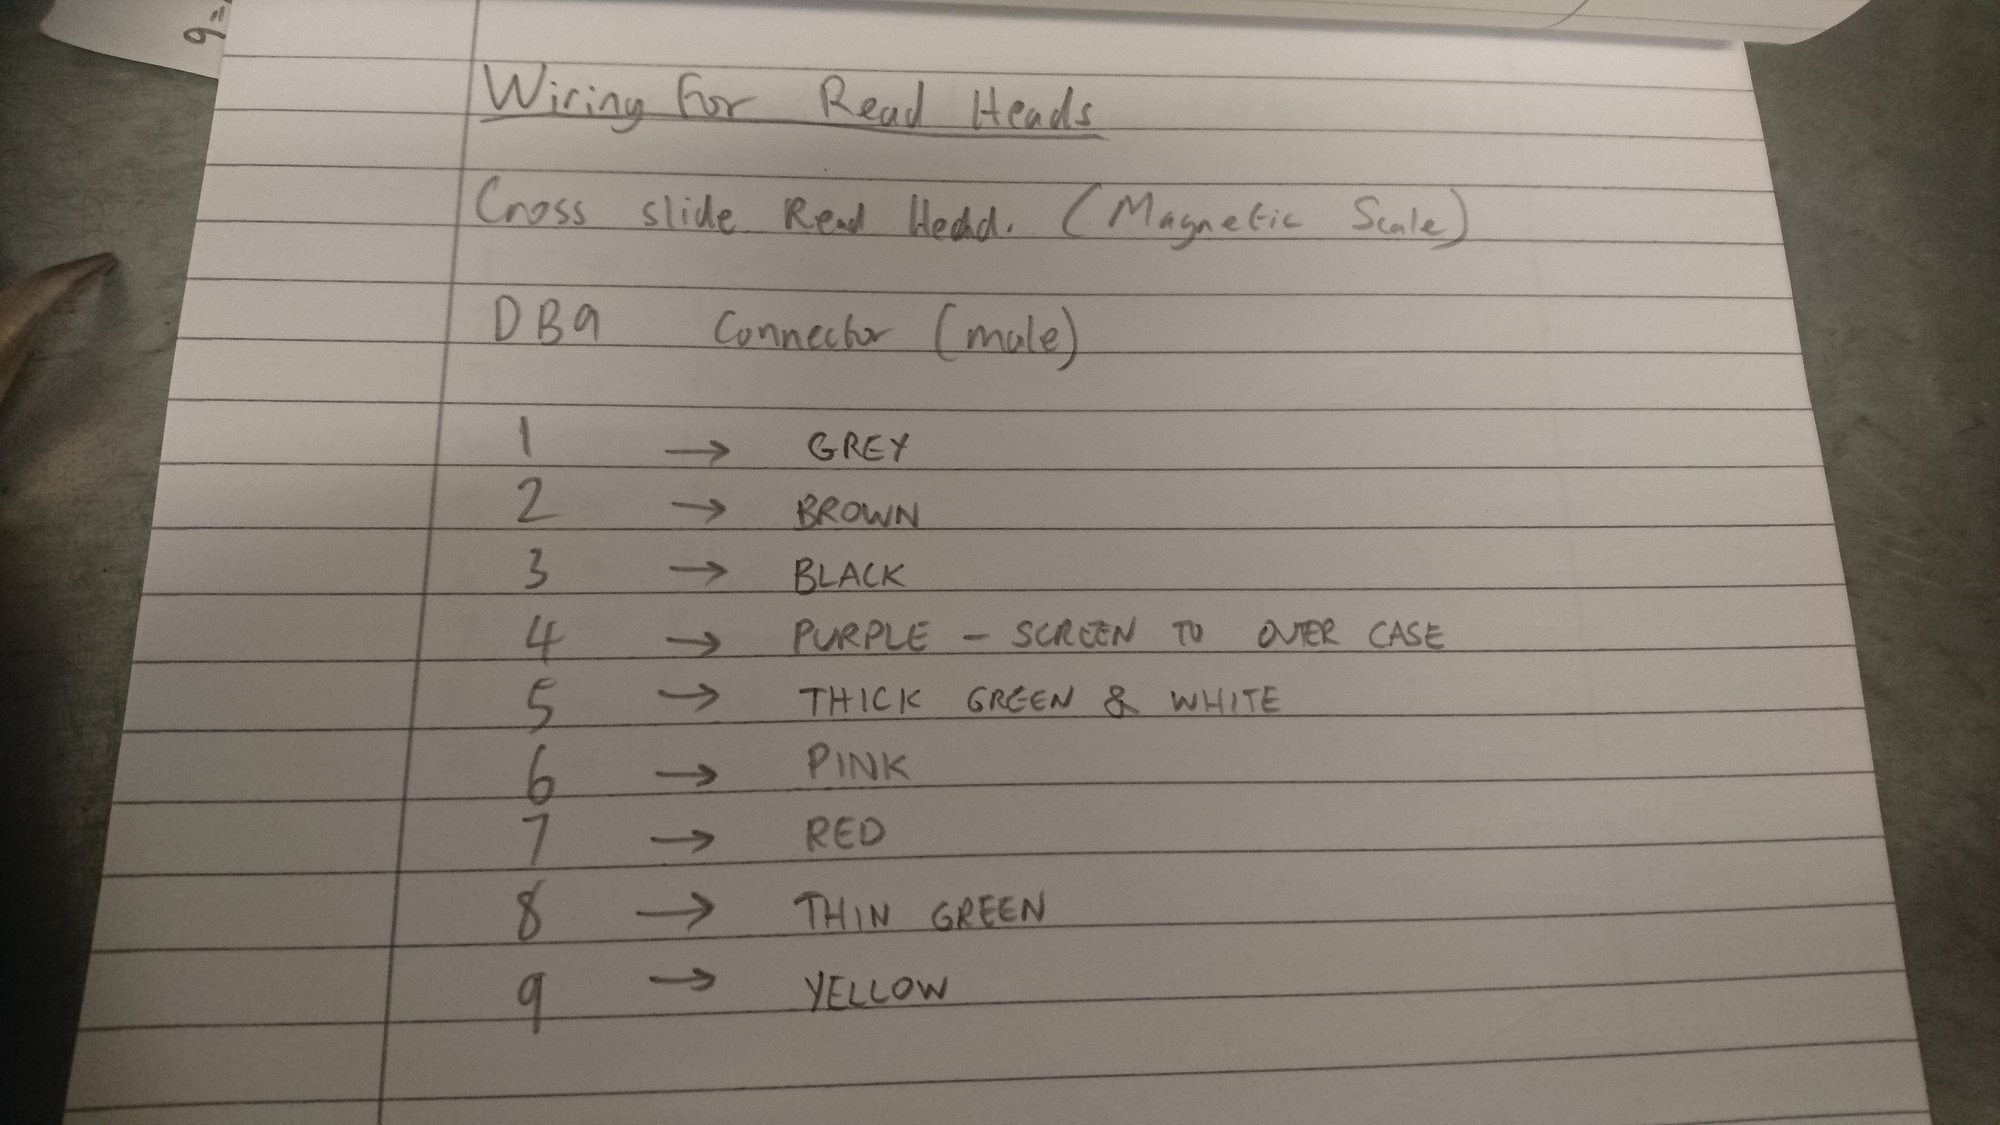 9=
Wiring For Read Heads
Cross slide Read Head. (Magnetic Scale)
DB9 Connector (male)
1 → GREY
2 → BROWN
3 → BLACK
4 → PURPLE – SCREEN TO OUTER CASE
5 → THICK GREEN & WHITE
6 → PINK
7 → RED
8 → THIN GREEN
9 → YELLOW